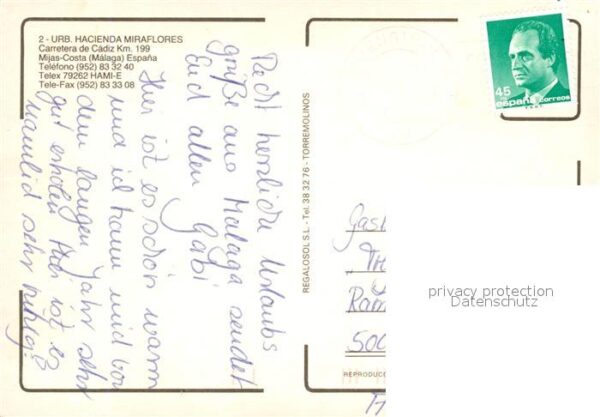 2 - URB. HACIENDA MIRAFLORES
Carretera de Cádiz Km. 199
Mijas-Costa (Málaga) España
Teléfono (952) 83 32 40
Telex 79262 HAMI-E
Tele-Fax (952) 83 33 08
Recht herzliche Urlaubs
grüße aus Malaga sendet
Euch allen Gabi
Hier ist es schön warm
und ich kann mich von
dem langen Jahr sehr
gut erholen. Hier ist es
nämlich sehr ruhig!
REGALOSOL S.L. - Tel. 38 32 76 - TORREMOLINOS
45
españa correos
Gast
Ram
500
privacy protection
Datenschutz
REPRODUC